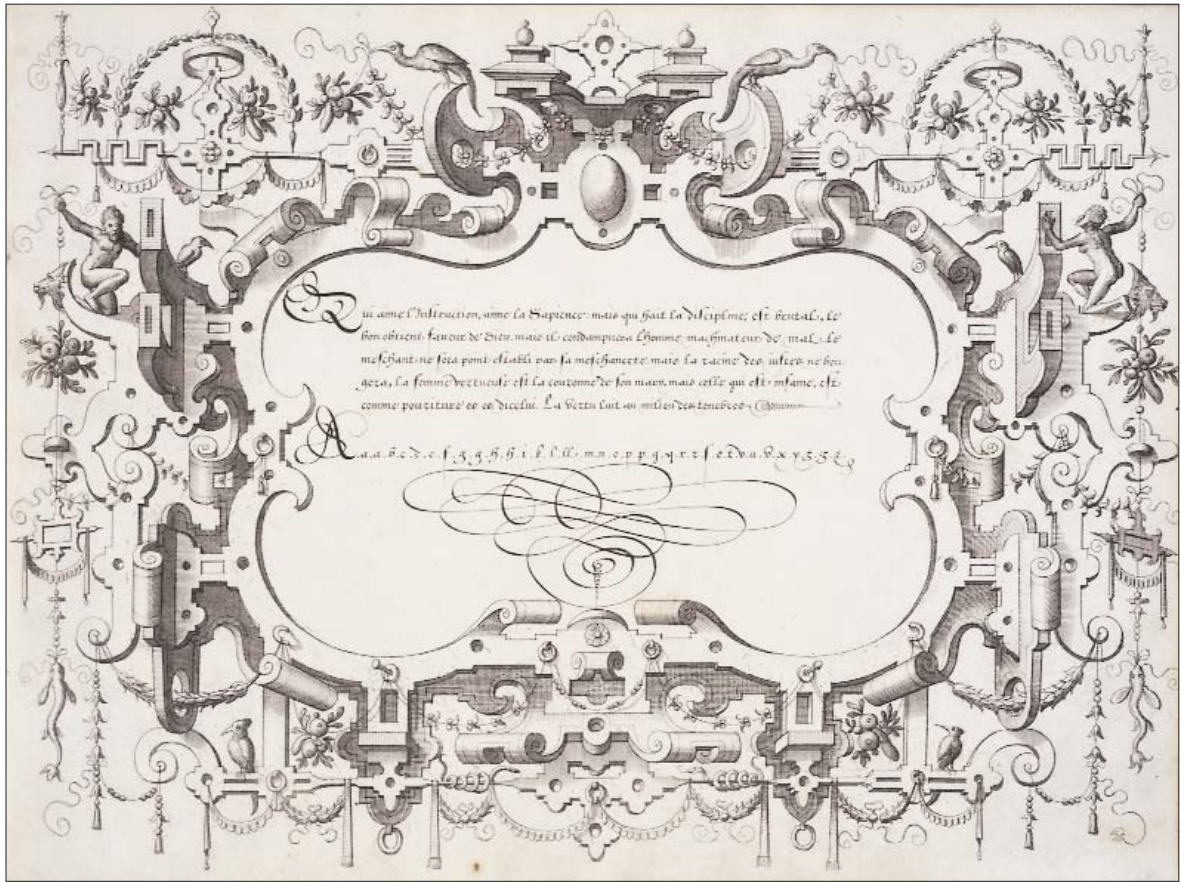 Qui ame l'Instruction, ame la Sapience: mais qui hait la discipline, est brutal, le
bon obtient faueur de Dieu, mais il condampnera Lhomme machinateur de mal, Le
meschant ne sera point establi par sa meschancete, mais la racine des iustes ne bou
gera, la femme vertueuse est la couronne de son mary, mais celle qui est infame, est
comme pouriture es os dicelui. La vertu luit au milieu des tenebres
A a.a.b.c.d.e.f.g.g.h.h.i.k.l.ll.m.n.o.p.p.q.q.r.z.s.e.t.v.u.x.y.z.z.&